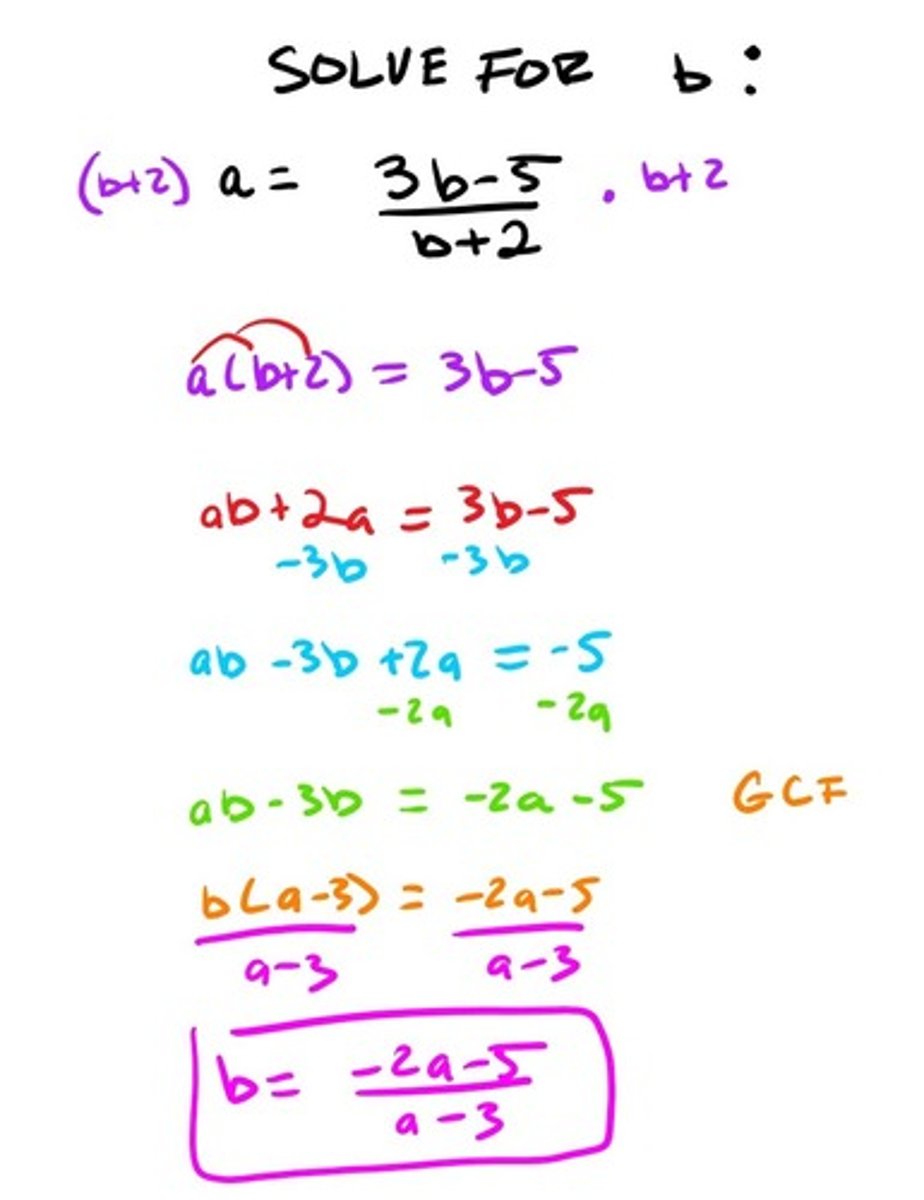 SOLVE FOR b:
(b+2) a = 3b-5 . b+2
b+2
a(b+2) = 3b-5
ab+2a = 3b-5
-3b -3b
ab -3b +2a = -5
-2a -2a
ab-3b = -2a-5 GCF
b(a-3) = -2a-5
a-3 a-3
b= -2a-5
a-3